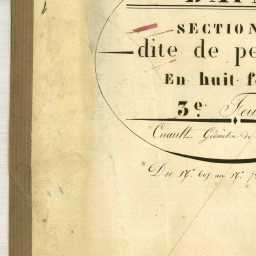 SECTION
dite de pe
En huit f
3e Feu
Cuault Géomètre de
Du N°. 607 au N°. 7